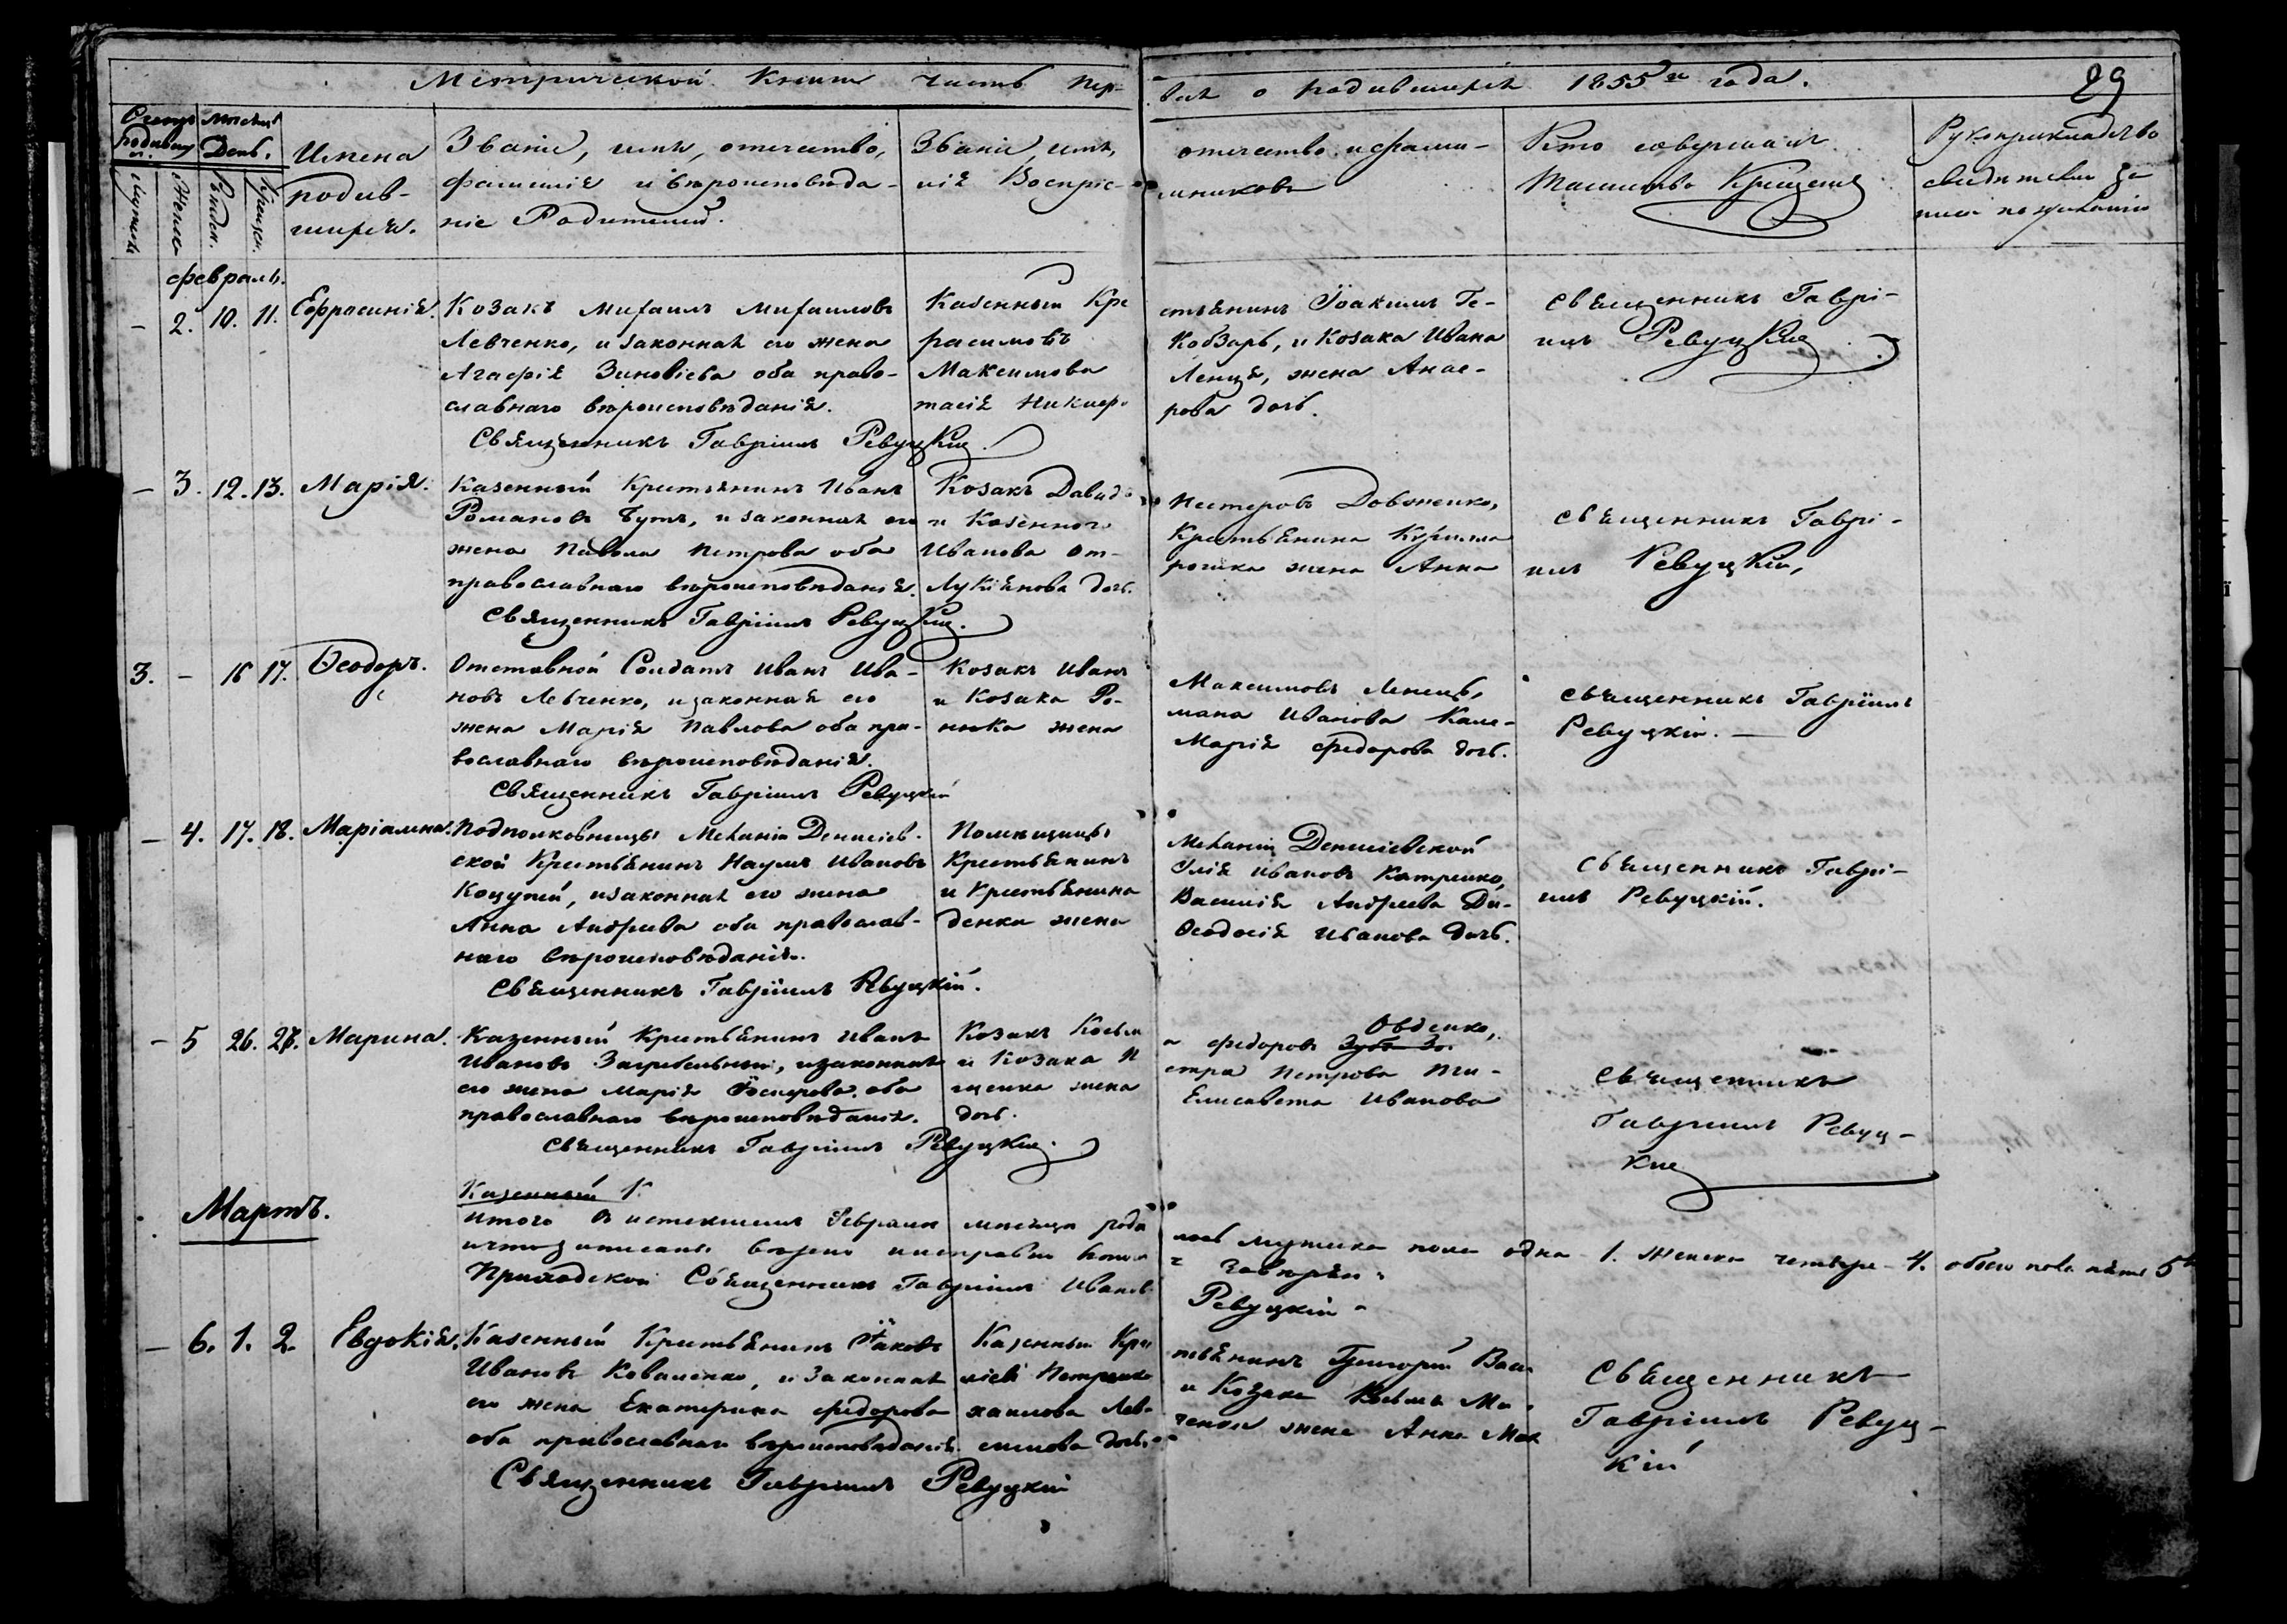 Метрической Книги часть пер-
вая о родившихся 1855го года.
29
Счетъ родившихся
Мѣсяцъ День.
Мужеска
Женска
Рожден.
Крещен.
Имена
родив-
шихся.
Званіе, имя, отечество,
фамилія и вѣроисповѣда-
ніе Родителей.
Званіе, имя,
отечество и фами-
лія Воспріе-
мниковъ
Кто совершалъ
Таинство Крещенія
Рукоприкладство
свидѣтелей за-
писи по желанію
февраль.
– 2. 10. 11. Ефросинія.
Козакъ Михаилъ Михаиловъ
Левченко, и законная его жена
Агафія Зиновіева оба право-
славнаго вѣроисповѣданія.
Священникъ Гавріилъ Ревуцкій
Казенный Кре
стьянинъ Іоакимъ Ге-
расимовъ
Кобзарь, и Козака Ивана
Максимова
Ленця, жена Анас-
тасія Никифо-
рова дочь.
Священникъ Гаврі-
илъ Ревуцкій
– 3. 12. 13. Марія.
Казенный Крестьянинъ Иванъ
Романовъ Бутъ, и законная его
жена Павла Петрова оба
православнаго вѣроисповѣданія.
Священникъ Гавріилъ Ревуцкій.
Козакъ Давидъ
Нестеровъ Довженко,
и Казенного
Крестьянина
Иванова
жена Анна
Лукіянова дочь.
Священникъ Гаврі-
илъ Ревуцкій,
3. – 16 17. Ѳеодоръ.
Отставной Солдатъ Иванъ Ива-
новъ Левченко, и законная его
жена Марія Павлова оба пра-
вославнаго вѣроисповѣданія.
Священникъ Гавріилъ Ревуцкій
Козакъ Иванъ
Максимовъ Ленецъ,
и Козака Ро-
мана Иванова Кале-
нюка жена
Марія Федорова дочь.
Священникъ Гавріилъ
Ревуцкій.
– 4. 17. 18. Маріамна.
Подполковницы Меланіи Денисіев-
ской Крестьянинъ Наумъ Ивановъ
Коцупей, и законная его жена
Анна Андреева оба православ-
наго вѣроисповѣданія.
Священникъ Гавріилъ Ревуцкій.
Помѣщицы
Меланіи Денисіевской
Крестьянинъ
Илія Ивановъ
и Крестьянина
Василія Андреева Ди-
денка жена
Ѳеодосія Иванова дочь.
Священникъ Гаврі-
илъ Ревуцкій.
– 5 26. 27. Марина.
Казенный Крестьянинъ Иванъ
Ивановъ Загребельный, и законная
его жена Марія оба
православнаго вѣроисповѣданія.
Священникъ Гавріилъ Ревуцкій.
Козакъ Косьм
а Федоровъ Овденко,
и Козака П
етра Петрова
щенка жена
Елисавета Иванова
дочь.
Священникъ
Гавріилъ Ревуц-
кій
Мартъ.
Казенный К
Итого въ истекшемъ Февралѣ мѣсяцѣ роди
лось мужеска пола одна 1. женска четыре 4. обоего пола пять 5ть
Приходской Священникъ Гавріилъ Иванов
Ревуцкій
– 6. 1. 2. Евдокія.
Казенный Крестьянинъ Іаковъ
Ивановъ Коваленко, и законная
его жена Екатерина Федорова
оба православнаго вѣроисповѣданія.
Священникъ Гавріилъ Ревуцкій
Казенный Крес
тьянинъ Григорій Васи
ліев Петренко
и Козака Косьмы Ми-
хаилова Лев-
ченка жена Анна Мак
симова дочь.
Священникъ
Гавріилъ Ревуц-
кій